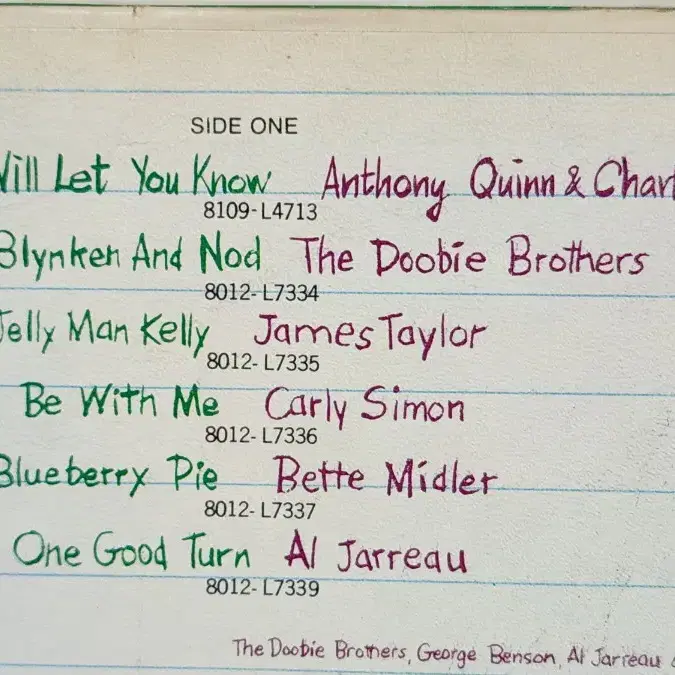 SIDE ONE
Will Let You Know Anthony Quinn & Char
8109-L4713
Blynken And Nod The Doobie Brothers
8012-L7334
Jelly Man Kelly James Taylor
8012-L7335
Be With Me Carly Simon
8012-L7336
Blueberry Pie Bette Midler
8012-L7337
One Good Turn Al Jarreau
8012-L7339
The Doobie Brothers, George Benson, Al Jarreau